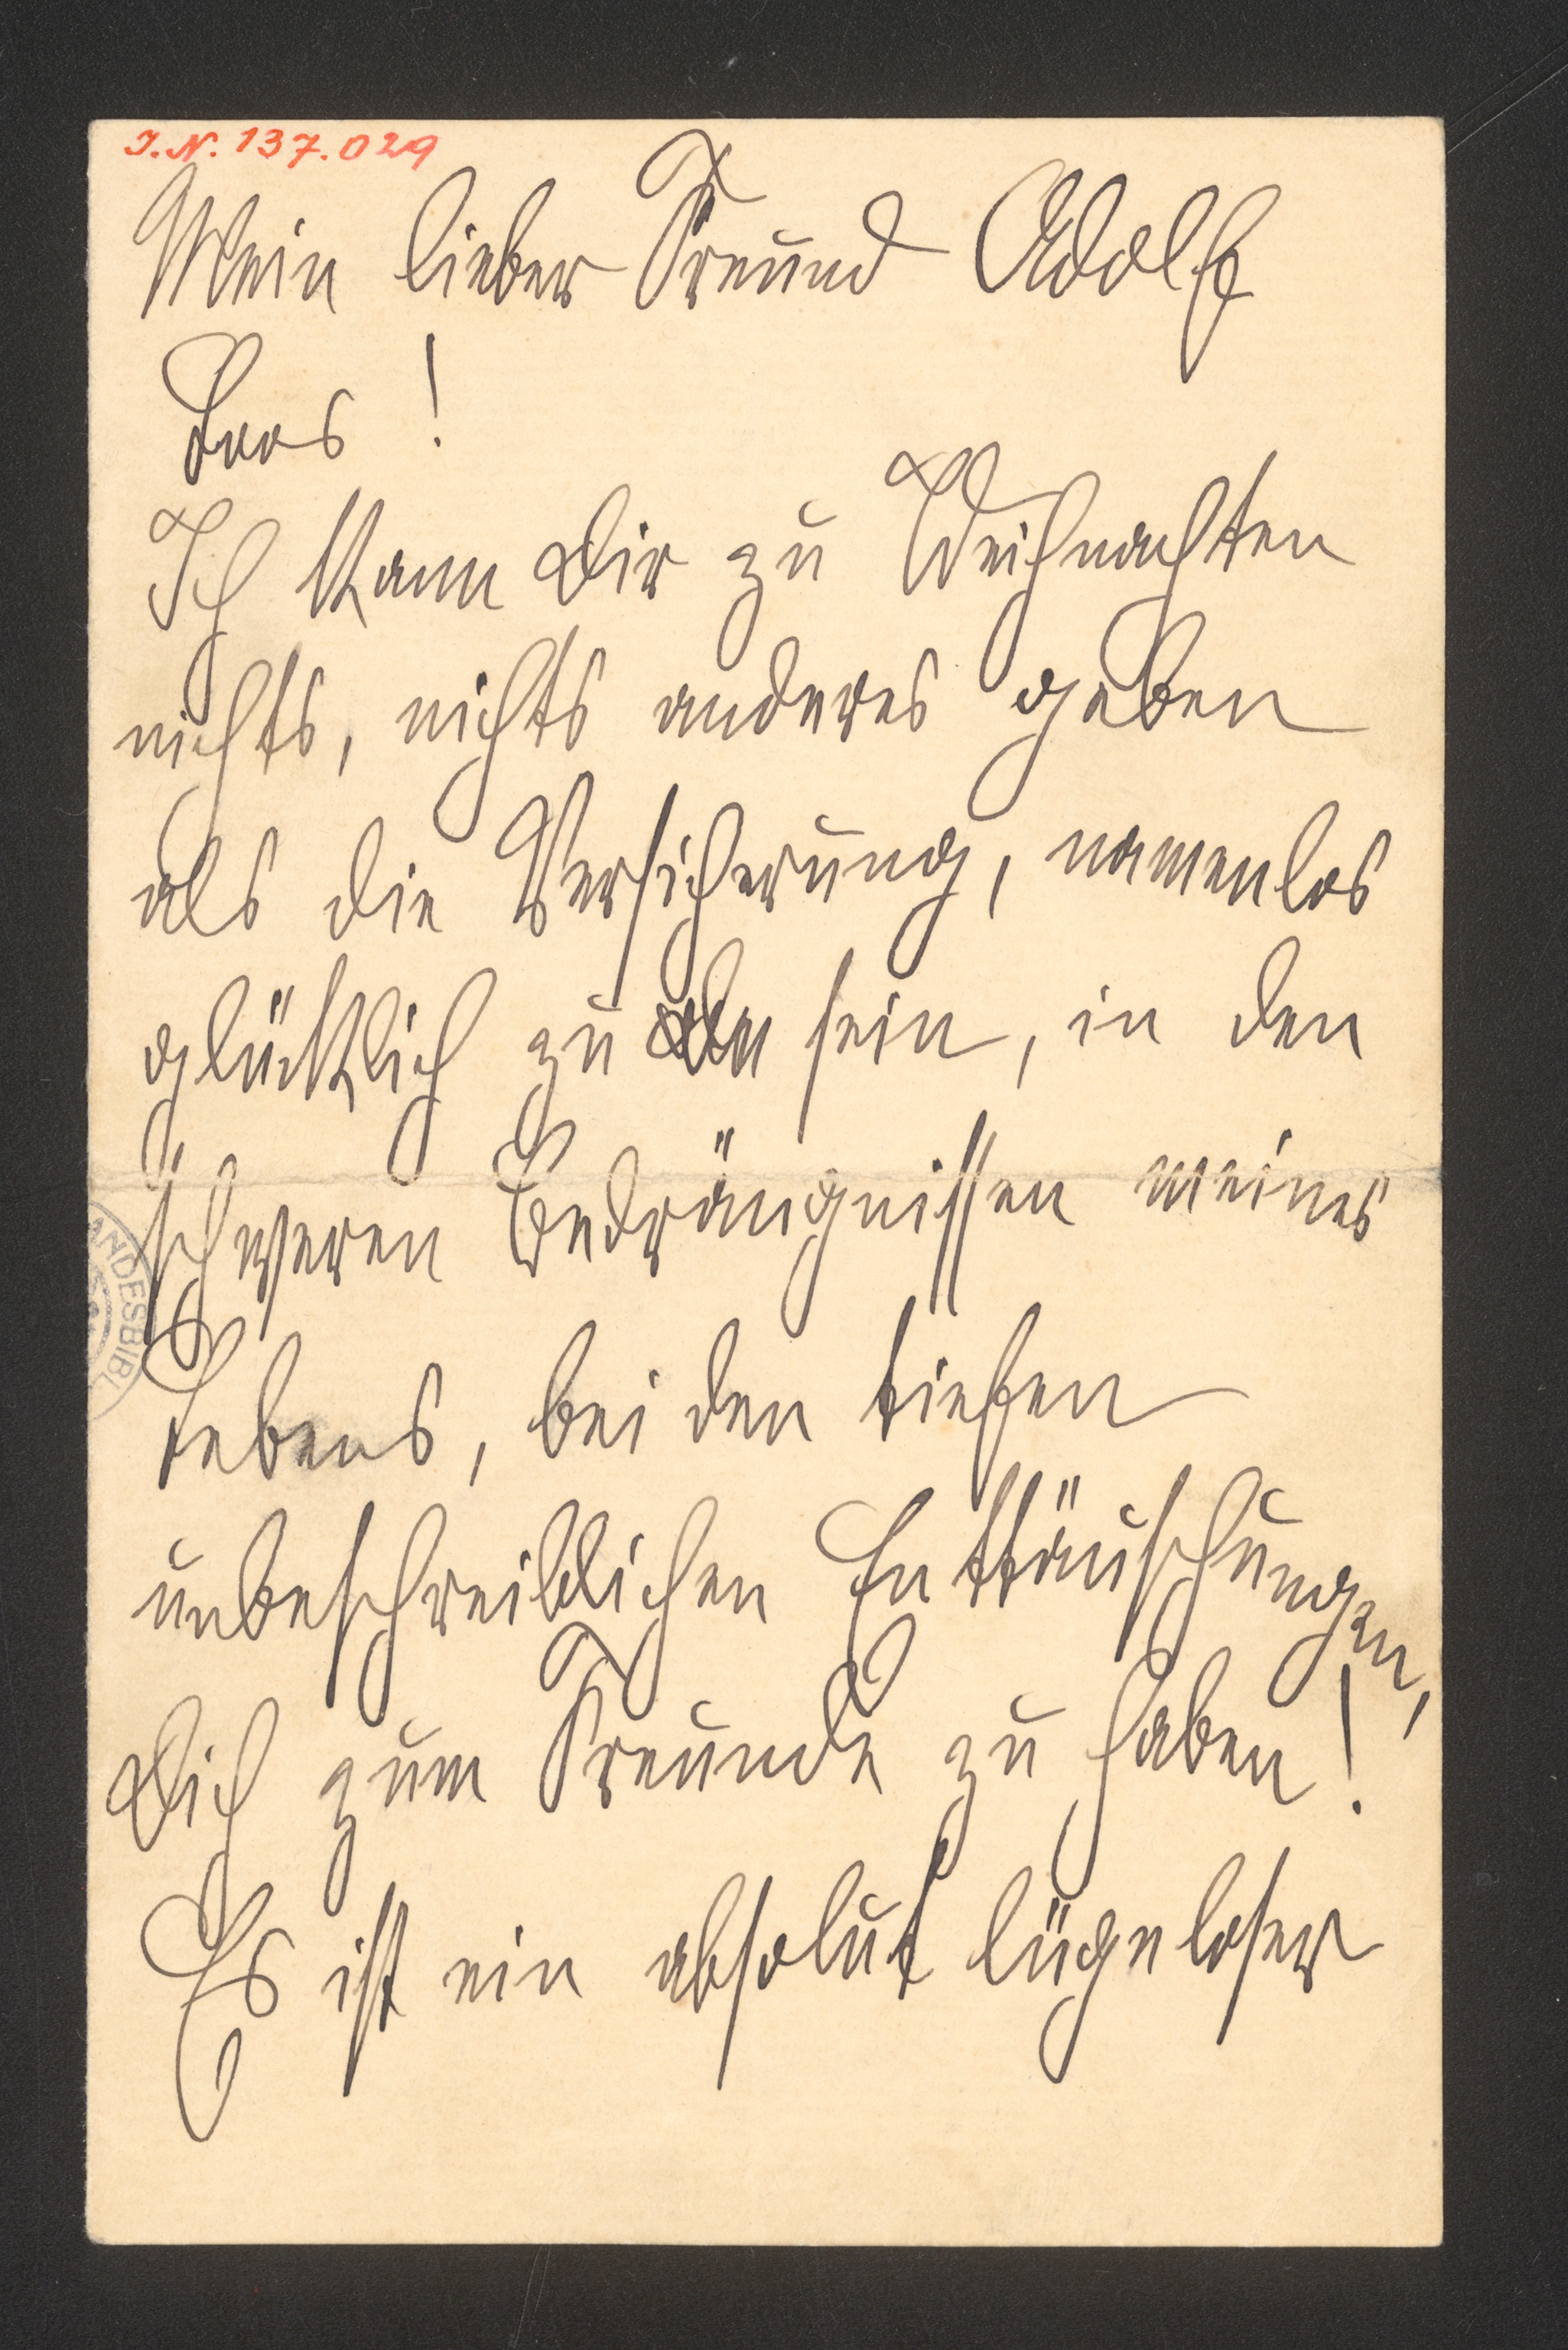 I.N. 137.029
Mein lieber Freund Adolf
Loos !
Ich kann Dir zu Weihnachten
nichts, nichts anderes geben
als die Versicherung, namenlos
glücklich zu sein, in den
schweren Bedrängnissen meines
Lebens, bei den tiefen
unbeschreiblichen Enttäuschungen,
Dich zum Freunde zu haben!
Es ist ein absolut lügenloser
ANDESBIBL